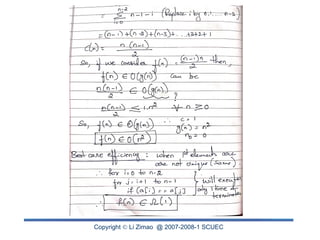 n-2
= Σ n-1-i (Replace i by 0,1...n-2)
i=0
= (n-1)+(n-2)+(n-3)+...+3+2+1
C(n) = n(n-1)/2
So, if we consider f(n) = (n-1)n/2 then,
f(n) ∈ O(g(n)) can be
n(n-1)/2 ∈ O(g(n))
?
n(n-1)/2 ≤ 1.n² ∀ n ≥ 0
So, f(n) ∈ O(g(n)) ∴ c = 1
g(n) = n²
n₀ = 0
f(n) ∈ O(n²)
Best case efficiency: when 1st elements are
are not unique (same).
∴ for i=0 to n-2
for j=i+1 to n-1
if (a[i] == a[j]
} will execute
only 1 time &
terminates
∴ f(n) ∈ Ω(1)
Copyright © Li Zimao @ 2007-2008-1 SCUEC